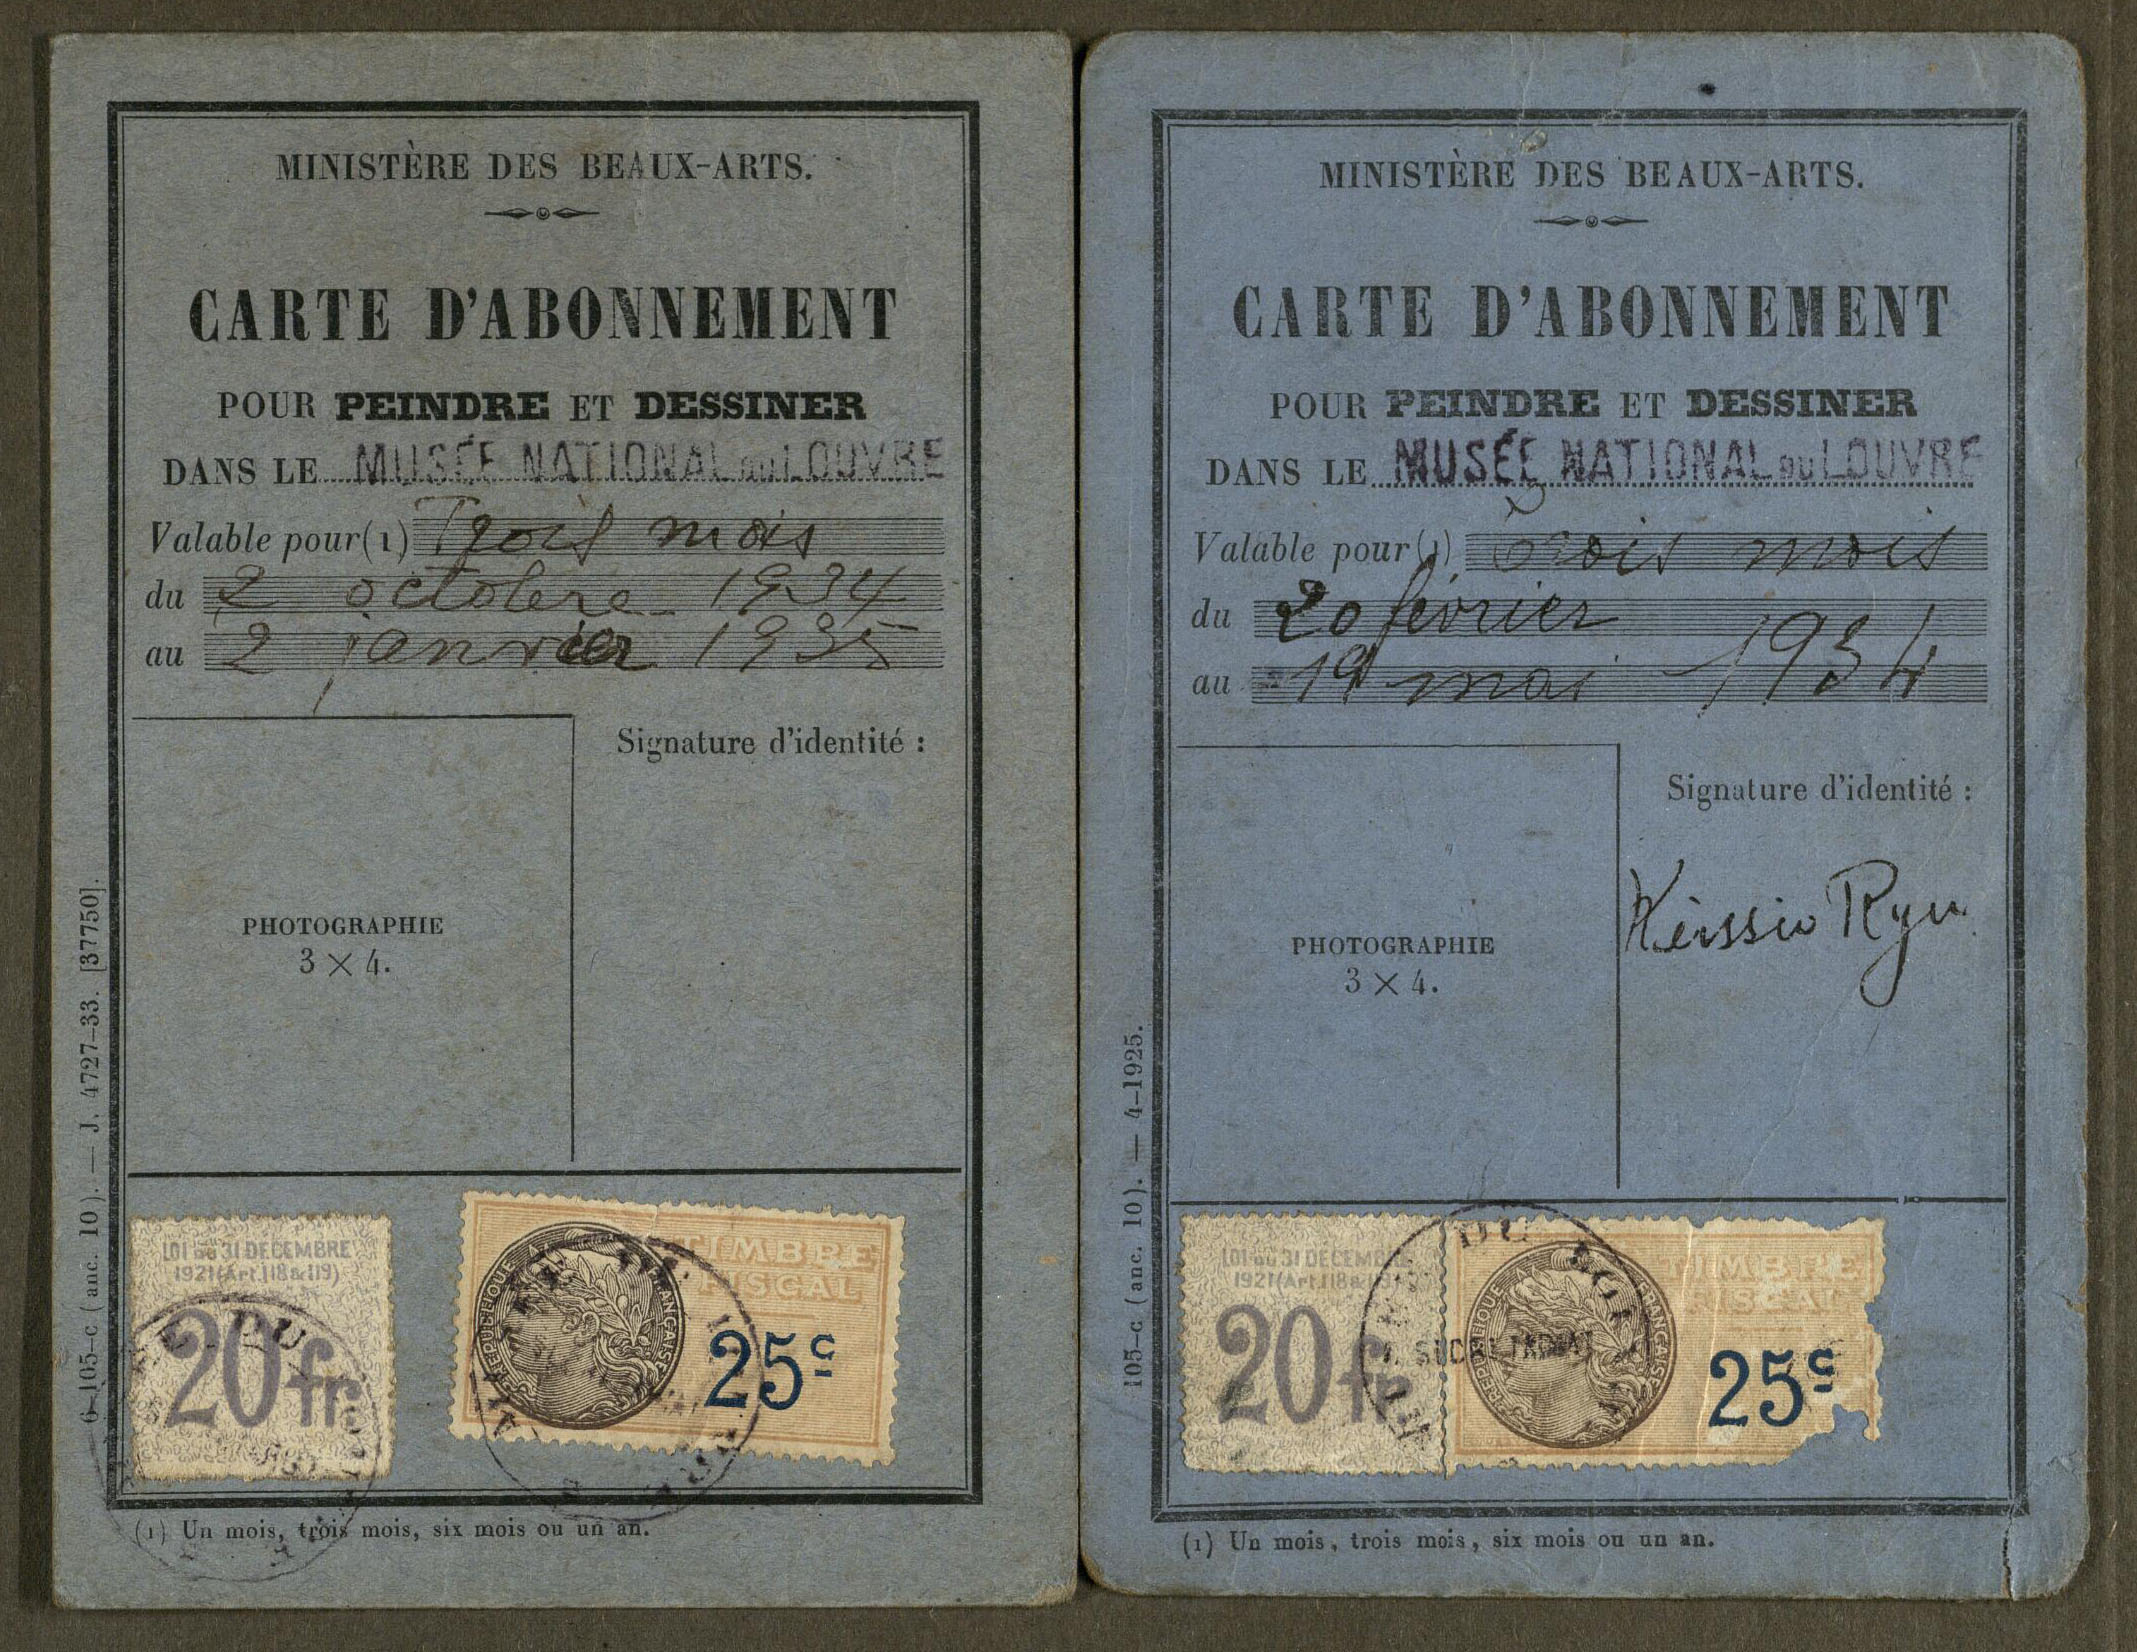 MINISTÈRE DES BEAUX-ARTS.
CARTE D'ABONNEMENT
POUR PEINDRE ET DESSINER
DANS LE MUSÉE NATIONAL DU LOUVRE
Valable pour (1) Trois mois
du 2 octobre 1934
au 2 janvier 1935
Signature d'identité :
PHOTOGRAPHIE
3 × 4.
LOI DU 31 DÉCEMBRE
1921 (Art. 118 & 119)
20 fr
TIMBRE
FISCAL
RÉPUBLIQUE FRANÇAISE
25c
(1) Un mois, trois mois, six mois ou un an.
6-105-c (anc. 10). — J. 4727-33. [37750].
MINISTÈRE DES BEAUX-ARTS.
CARTE D'ABONNEMENT
POUR PEINDRE ET DESSINER
DANS LE MUSÉE NATIONAL DU LOUVRE
Valable pour (1) Trois mois
du 20 février
au 19 mai 1934
Signature d'identité :
Ryu
PHOTOGRAPHIE
3 × 4.
LOI DU 31 DÉCEMBRE
1921 (Art. 118 & 119)
20 fr
TIMBRE
FISCAL
RÉPUBLIQUE FRANÇAISE
25c
(1) Un mois, trois mois, six mois ou un an.
105-c (anc. 10). — 4-1925.